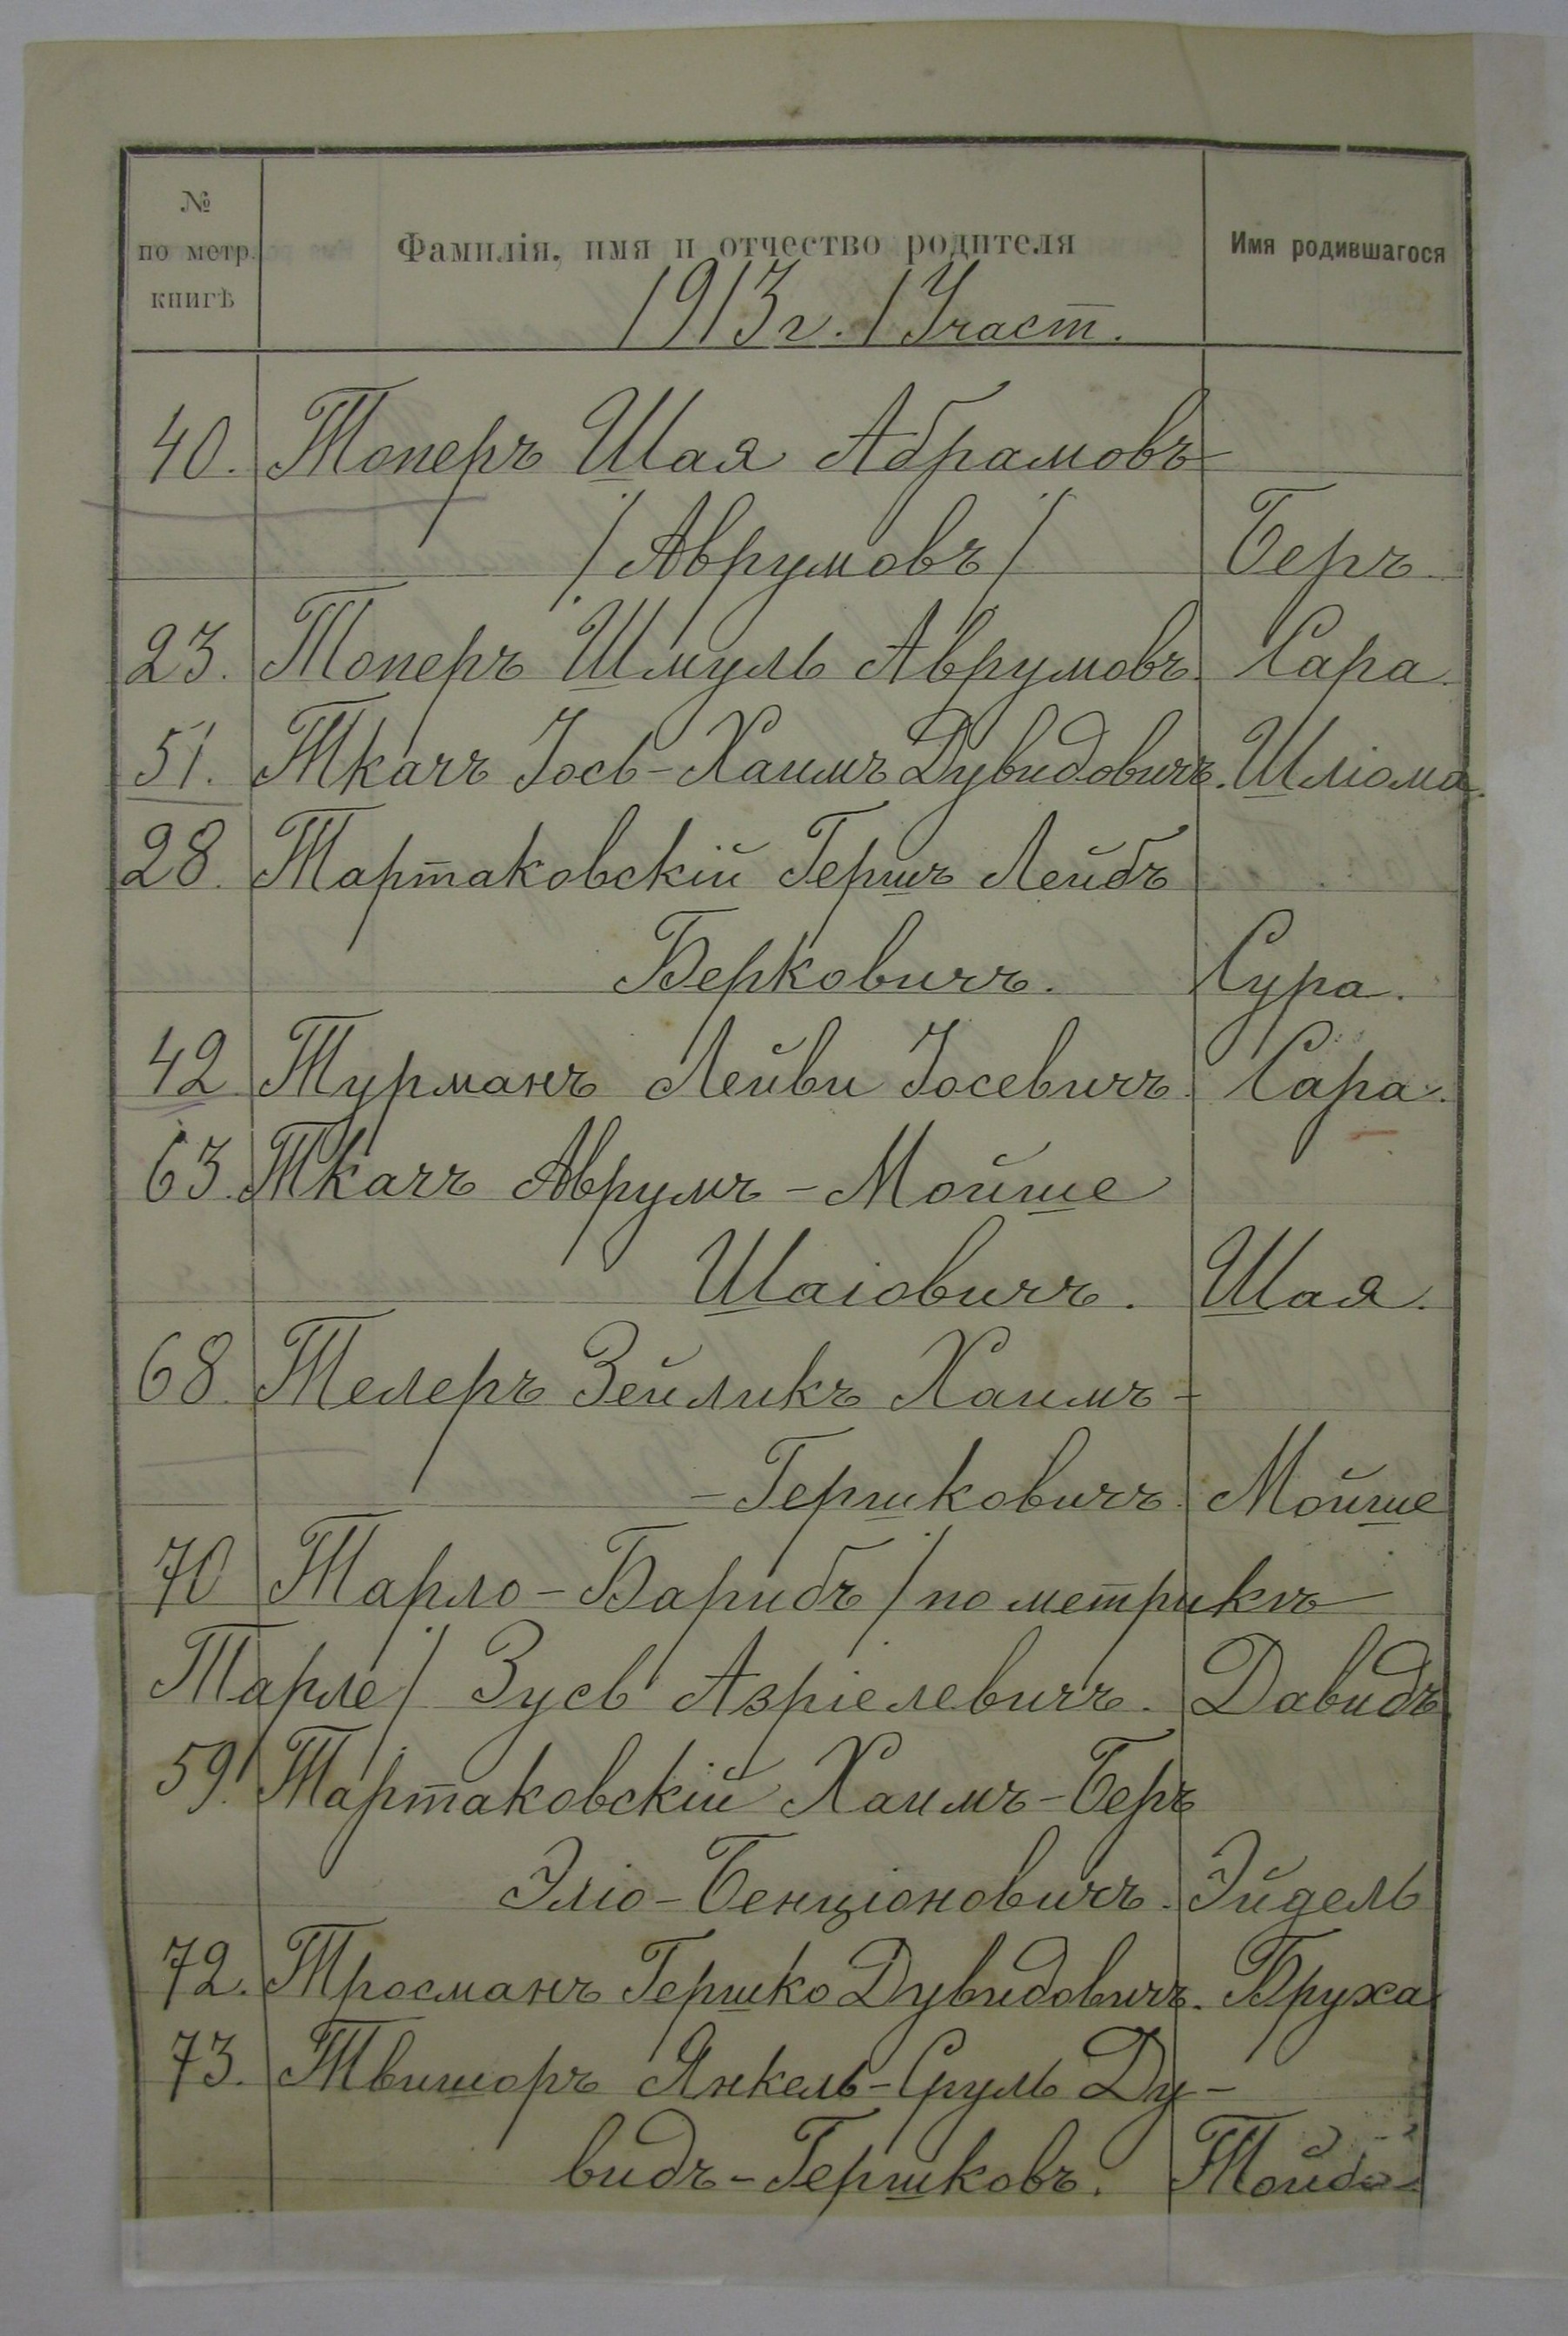 №
по метр.
книгѣ
Фамилія, имя и отчество родителя
Имя родившагося
1913 г. / Участ.
40. Топеръ Шая Абрамовъ
/ Аврумовъ / Беръ
23. Топеръ Шмуль Аврумовъ. Сара.
51. Ткачъ Іось-Хаимъ Дувидовичъ. Шліома.
28. Тартаковскій Гершъ Лейбъ
Берковичъ. Сура.
42 Турманъ Лейви Іосевичъ. Сара.
63. Ткачъ Аврумъ-Мойше
Шаіовичъ. Шая.
68. Телеръ Зейликъ Хаимъ-
-Гершковичъ. Мойше
70 Тарло-Барибъ / по метрикѣ
Тарле / Зусь Азріелевичъ. Давидъ
59. Тартаковскій Хаимъ-Беръ
Эліо-Бенціоновичъ. Эйдель
72. Тросманъ Гершко Дувидовичъ. Бруха
73. Твишоръ Янкель-Сруль Ду-
видъ-Гершковъ. Тойба